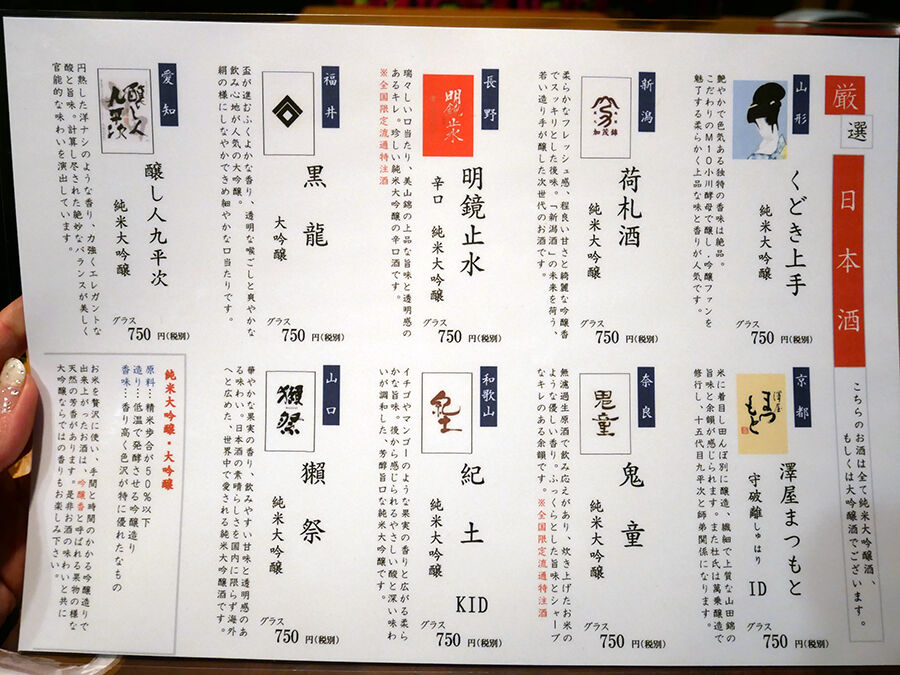 厳選
日本酒
こちらのお酒は全て純米大吟醸酒、
もしくは大吟醸酒でございます。
山形
くどき上手
純米大吟醸
艶やかで色気ある独特の香味は絶品。
こだわりのM10小川酵母で醸し、吟醸ファンを
魅了する柔らかく上品な味と香りが人気です。
グラス
750円(税別)
新潟
加茂錦
荷札酒
純米大吟醸
柔らかなフレッシュ感、程良い甘さと綺麗な吟醸香
でスッキリとした後味。「新潟酒」の未来を荷う、
若い造り手が醸した次世代のお酒です。
グラス
750円(税別)
長野
明鏡止水
明鏡止水
辛口 純米大吟醸
瑞々しい口当たり、美山錦の上品な旨味と透明感の
あるキレ。珍しい純米大吟醸の辛口酒です。
※全国限定流通特注酒
グラス
750円(税別)
福井
黒龍
大吟醸
盃が進むふくよかな香り、透明な喉ごしと爽やかな
飲み心地が人気の大吟醸。
絹の様にしなやかできめ細やかな口当たりです。
グラス
750円(税別)
愛知
醸し人九平次
醸し人九平次
純米大吟醸
円熟した洋ナシのような香り、力強くエレガントな
酸と旨味。計算し尽された絶妙なバランスが美しく
官能的な味わいを演出しています。
グラス
750円(税別)
京都
澤屋
まつもと
澤屋まつもと
守破離しゅはり ID
純米大吟醸
米に着目し田んぼ別に醸造、繊細で上質な山田錦の
旨味と余韻が感じられます。また杜氏は萬乗醸造で
修行し、十五代目九平次と師弟関係になります。
グラス
750円(税別)
奈良
鬼童
鬼童
純米大吟醸
無濾過生原酒で飲み応えがあり、炊き上げたお米の
ような優しい香り。ふっくらとした旨味とシャープ
なキレのある余韻です。※全国限定流通特注酒
グラス
750円(税別)
和歌山
紀土
紀土 KID
純米大吟醸
イチゴやマンゴーのような果実の香りと広がる柔ら
かな旨味。後から感じられるやさしい酸と深い味わ
いが調和した、芳醇旨口な純米大吟醸です。
グラス
750円(税別)
山口
獺祭
獺祭
純米大吟醸
華やかな果実の香り、飲みやすい甘味と透明感のあ
る味わい。日本酒の素晴らしさを国内に限らず海外
へと広めた、世界中で愛される純米大吟醸酒です。
グラス
750円(税別)
純米大吟醸・大吟醸
原料…精米歩合が50%以下
造り…低温で発酵させる吟醸造り
香味…香り高く色沢が特に優れたなもの
お米を贅沢に使い、手間と時間のかかる吟醸造りで
出来上がったお酒は、吟醸香と呼ばれる果物の様な
天然の芳香があります。是非お酒の味わいと共に
大吟醸ならではの香りもお楽しみ下さい。